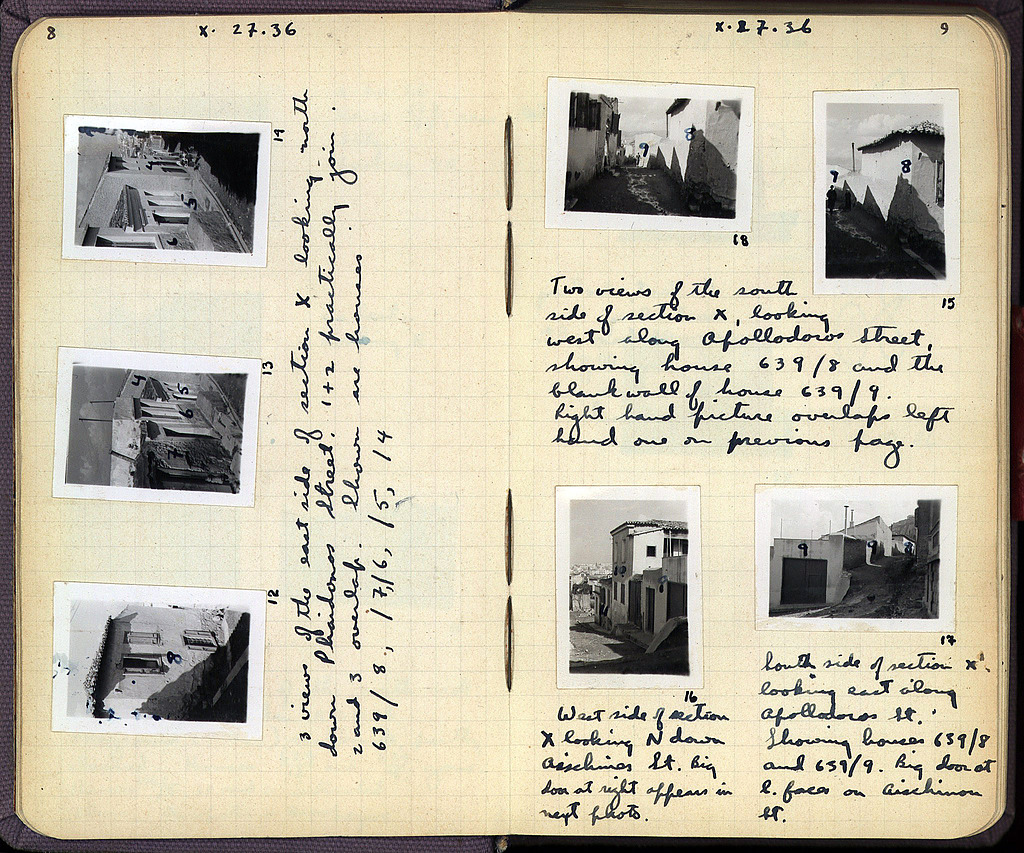 8
X. 27.36
19
13
12
3 views of the east side of section X looking north
down Phaidonos Street. 1+2 practically join.
2 and 3 overlap. Shown are houses
639/8, /7, /6, /5, /4
X.27.36
9
9 8
18
9 8
15
Two views of the south
side of section X, looking
west along Apollodoros Street,
showing house 639/8 and the
blank wall of house 639/9.
Right hand picture overlaps left
hand one on previous page.
10 9
16
West side of section
X looking N down
Aischines St. Big
door at right appears in
next photo.
9 9 8
17
South side of section X
looking east along
Apollodoros St.
Showing houses 639/8
and 639/9. Big door at
l. faces on Aischinou
St.